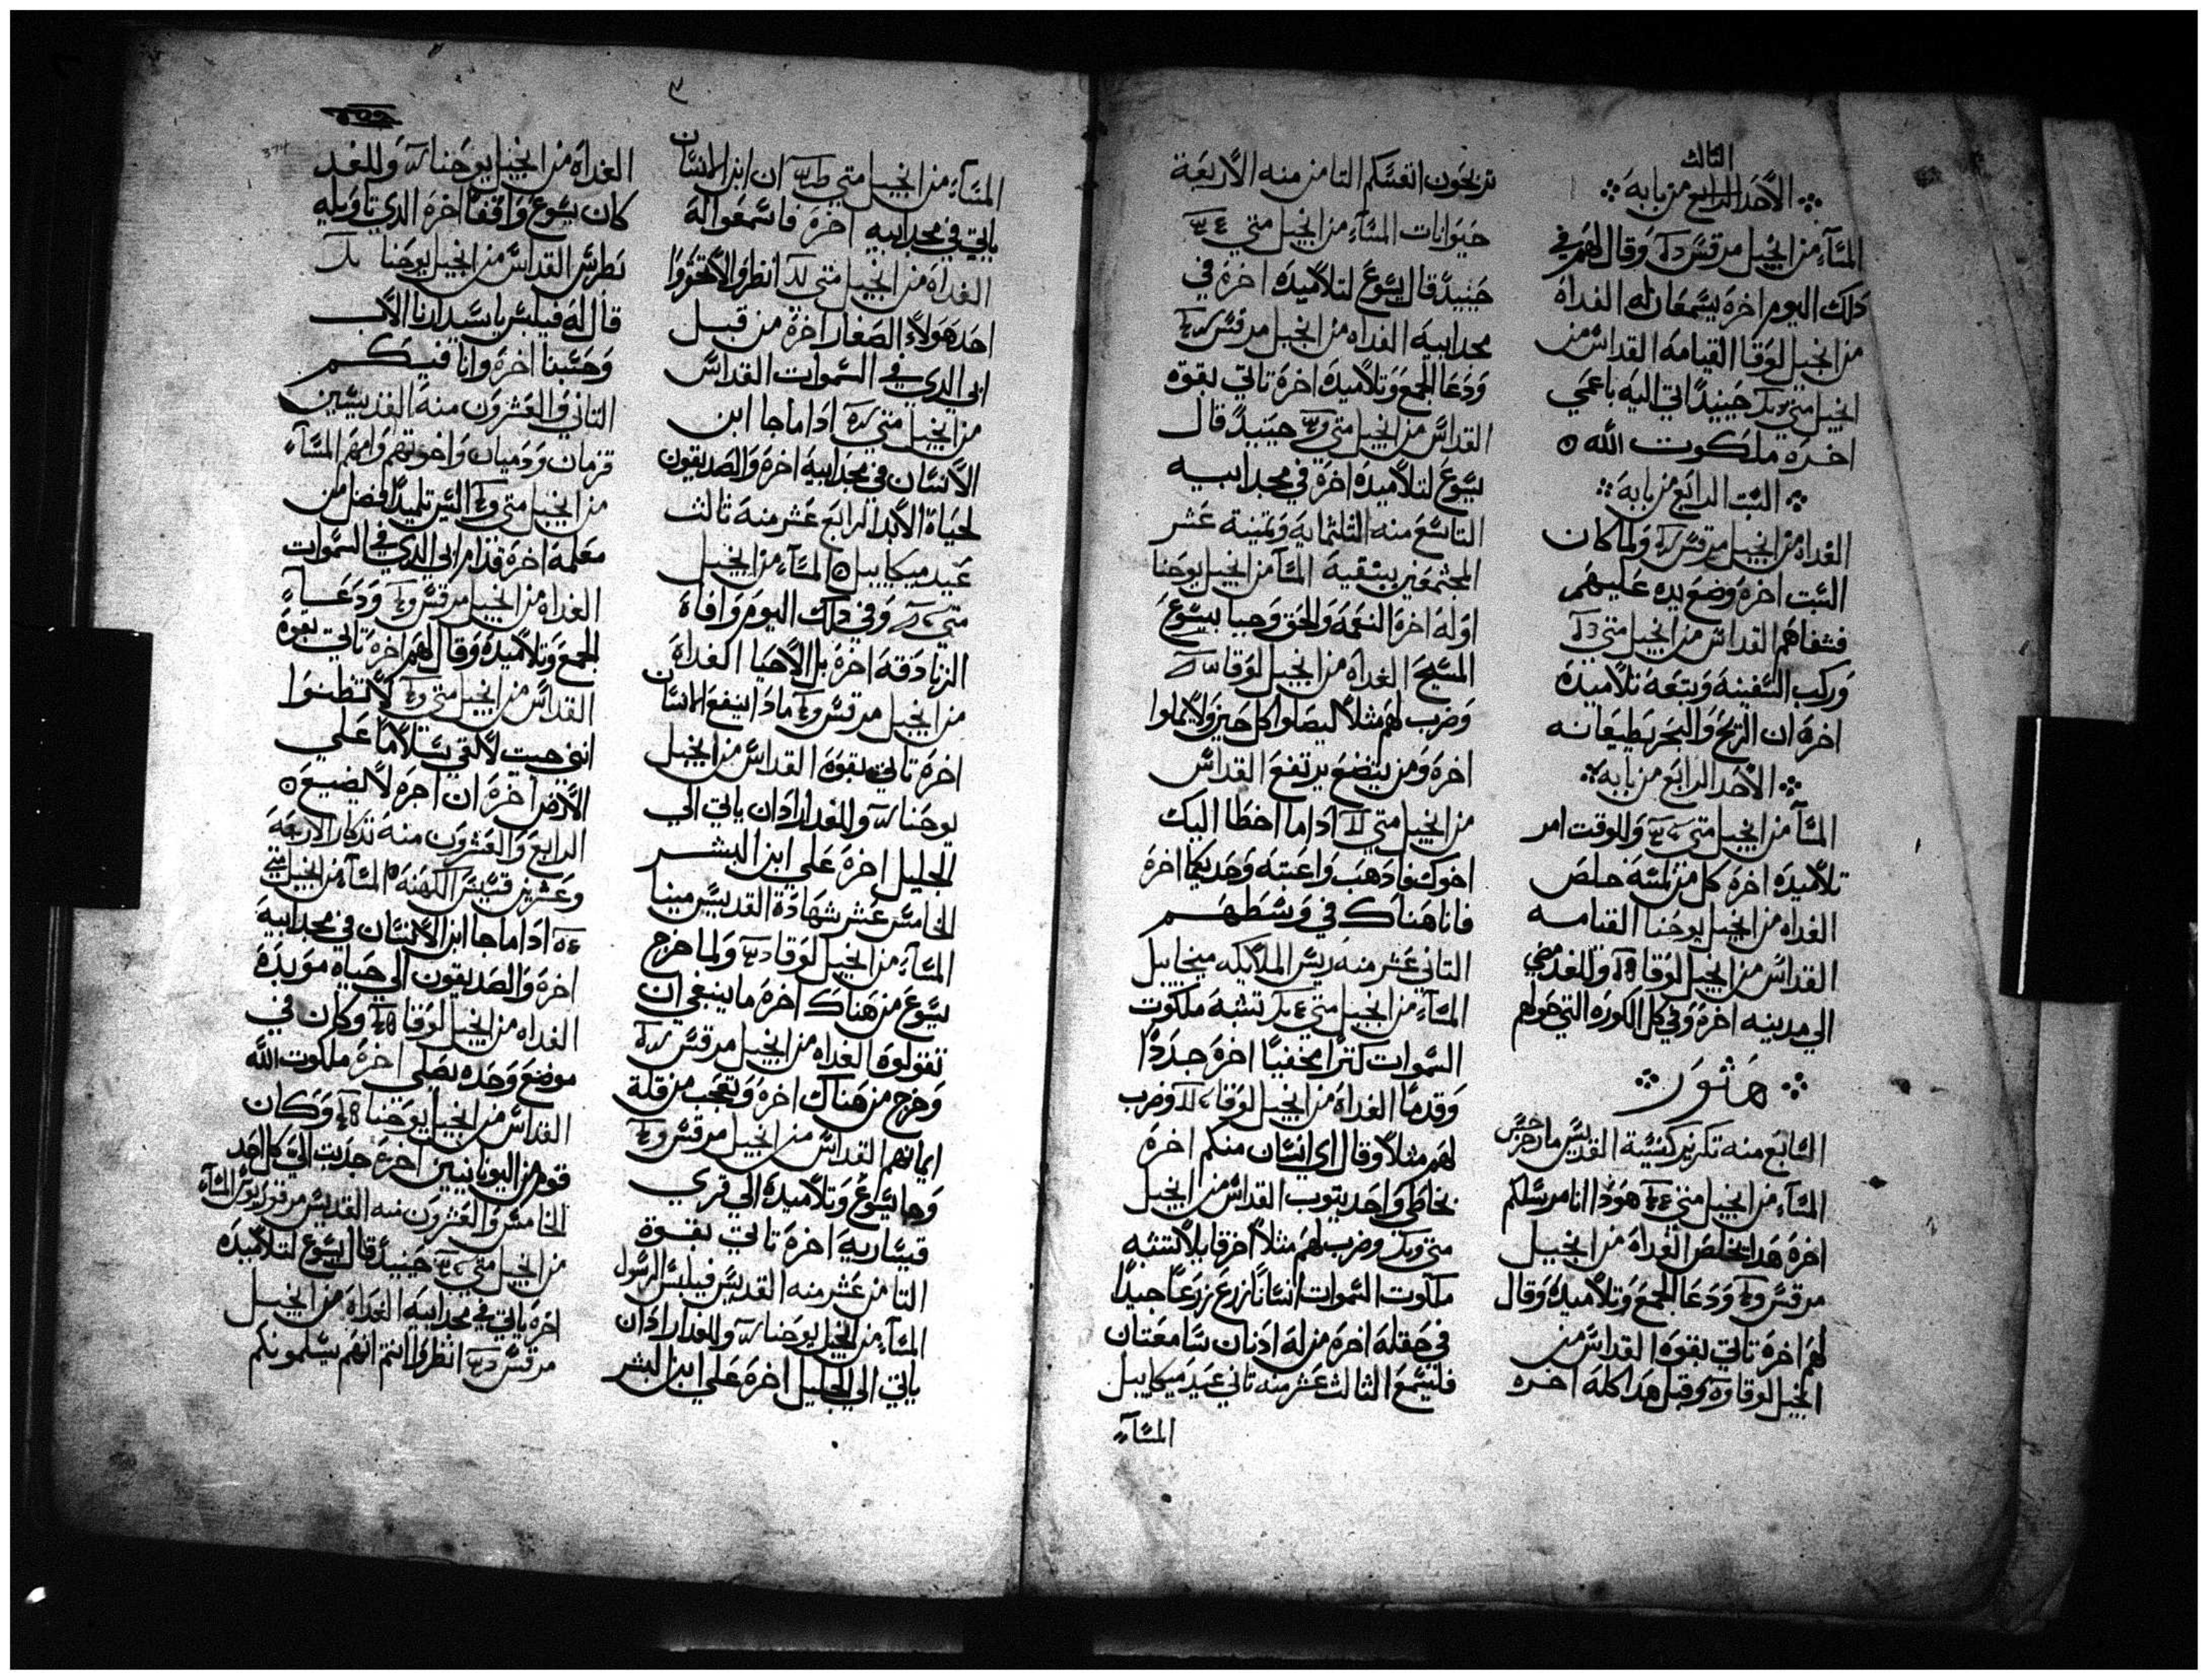 الثالث
الاحد الرابع من بابه
المسآء من انجيل مرقس وقال لهم في
دلك اليوم اخره يسمعان له الغداه
من انجيل لوقا القيامه القداس من
انجيل متي حينيدًا اتي اليه باعمي
اخره ملكوت الله
السبت الرابع من بابه
الغداه من انجيل مرقس ولما كان
السبت اخره وضع يده عليهم
فشفاهم القداس من انجيل متي
وركب السفينه وتبعه تلاميده
اخره ان الريح والبحر يطيعانه
الاحد الرابع من بابه
المسآ من انجيل متي وللوقت امر
تلاميده اخره كل من لمسه خلص
الغداه من انجيل يوحنا القيامه
القداس من انجيل لوقا وللغد مضي
الي مدينه اخره وفي كل الكوره التي حولهم
هتور
السابع منه تكريز كنيسة القديس مار جرجس
المسآء من انجيل متي هودا انا مرسلكم
اخره هدا يخلص الغداه من انجيل
مرقس ودعا الجمع وتلاميده وقال
لهم اخره تاتي بقوه القداس من
انجيل لوقا وقبل هدا كله اخره
تربحون انفسكم التامن منه الاربعة
حيوانات المسآء من انجيل متي
حينيد قال يسوع لتلاميده اخره في
مجد ابيه الغداه من انجيل مرقس
ودعا الجمع وتلاميده اخره تاتي بقوه
القداس من انجيل متي حينيد قال
يسوع لتلاميده اخره في مجد ابيه
التاسع منه الثلثمايه وتمنية عشر
المجتمعين بنيقية المسآ من انجيل يوحنا
اوله اخره النعمه والحق وجبا بيسوع
المسيح الغداه من انجيل لوقا
وضرب لهم مثلاً ليصلوا كل حين ولا يملوا
اخره ومن يتضع يرتفع القداس
من انجيل متي ادا ما اخطا اليك
اخوك فادهب واعتبه وحديكما اخره
فانا هناك في وسطهم
التاني عشر منه ريس الملايكه ميخاييل
المسآء من انجيل متي تشبه ملكوت
السموات كنزًا مخفيًا اخره جددًا
وقدمًا الغداه من انجيل لوقا وضرب
لهم مثلاً وقال اي انسان منكم اخره
بخاطي واحد يتوب القداس من انجيل
متي وضرب لهم مثلاً اخر قايلاً تشبه
ملكوت السموات انسانًا زرع زرعًا جيدًا
في حقله اخره من له ادنان سامعتان
فليسمع الثالث عشر منه تاني عيد ميكاييل
المسآء
المسآء من انجيل متي ان ابن الانسان
ياتي في مجد ابيه اخره فاسمعوا له
الغداه من انجيل متي انظروا لا تحقروا
احد هولاء الصغار اخرة من قبل
ابي الدي في السموات القداس
من انجيل متي ادا ما جا ابن
الانسان في مجد ابيه اخره والصديقون
لحياة الابد الرابع عشر منه تالت
عيد ميكاييل المسآء من انجيل
متي وفي دلك اليوم وافاه
الزنادقه اخره بل الاحيا الغداه
من انجيل مرقس مادا ينفع الانسان
اخره تاتي بقوه القداس من انجيل
يوحنا وللغد اراد ان ياتي الي
الجليل اخره علي ابن البشر
الخامس عشر شهادة القديس مينا
المسآء من انجيل لوقا ولما خرج
يسوع من هناك اخره ما ينبغي ان
تقولوه الغداه من انجيل مرقس
وخرج من هناك اخره وتعجب من قلة
ايمانهم القداس من انجيل مرقس
وجا يسوع وتلاميده الي قري
قيساريه اخره تاتي بقوة
التامن عشر منه القديس فيلبس الرسول
المسآ من انجيل يوحنا وللغد اراد ان
ياتي الي الجليل اخره علي ابن البشر
الغداه من انجيل يوحنا وللغد
كان يسوع واقفا اخره الدي تاويله
بطرس القداس من انجيل يوحنا
قال له فيلبس ياسيد ارنا الاب
وحسبنا اخره وانا فيكم
التاني والعشرون منه القديسين
قزمان ودميان واخوتهم وامهم المسآء
من انجيل متي ليس تلميدًا افضل من
معلمه اخره قدام ابي الدي في السموات
الغداه من انجيل مرقس ودعا
الجمع وتلاميده وقال لهم اخره تاتي بقوة
القداس من انجيل متي لا تظنوا
انني جيت لالقي سلاما علي
الارض اخره ان اجره لا يضيع
الرابع والعشرون منه تدكار الاربعه
وعشرين قسيس الكهنه المسآ من انجيل متي
ادا ما جا ابن الانسان في مجد ابيه
اخره والصديقون الي حياه موبده
الغداه من انجيل لوقا وكان في
موضع وحده يصلي اخره ملكوت الله
القداس من انجيل يوحنا وكان
قوم من اليونانيين اخره جدبت الي كل احد
الخامس والعشرون منه القديس مرقوريوس المسآء
من انجيل متي حينيد قال يسوع لتلاميده
اخره ياتي في مجد ابيه الغداه من انجيل
مرقس انظروا انتم انهم يسلمونكم